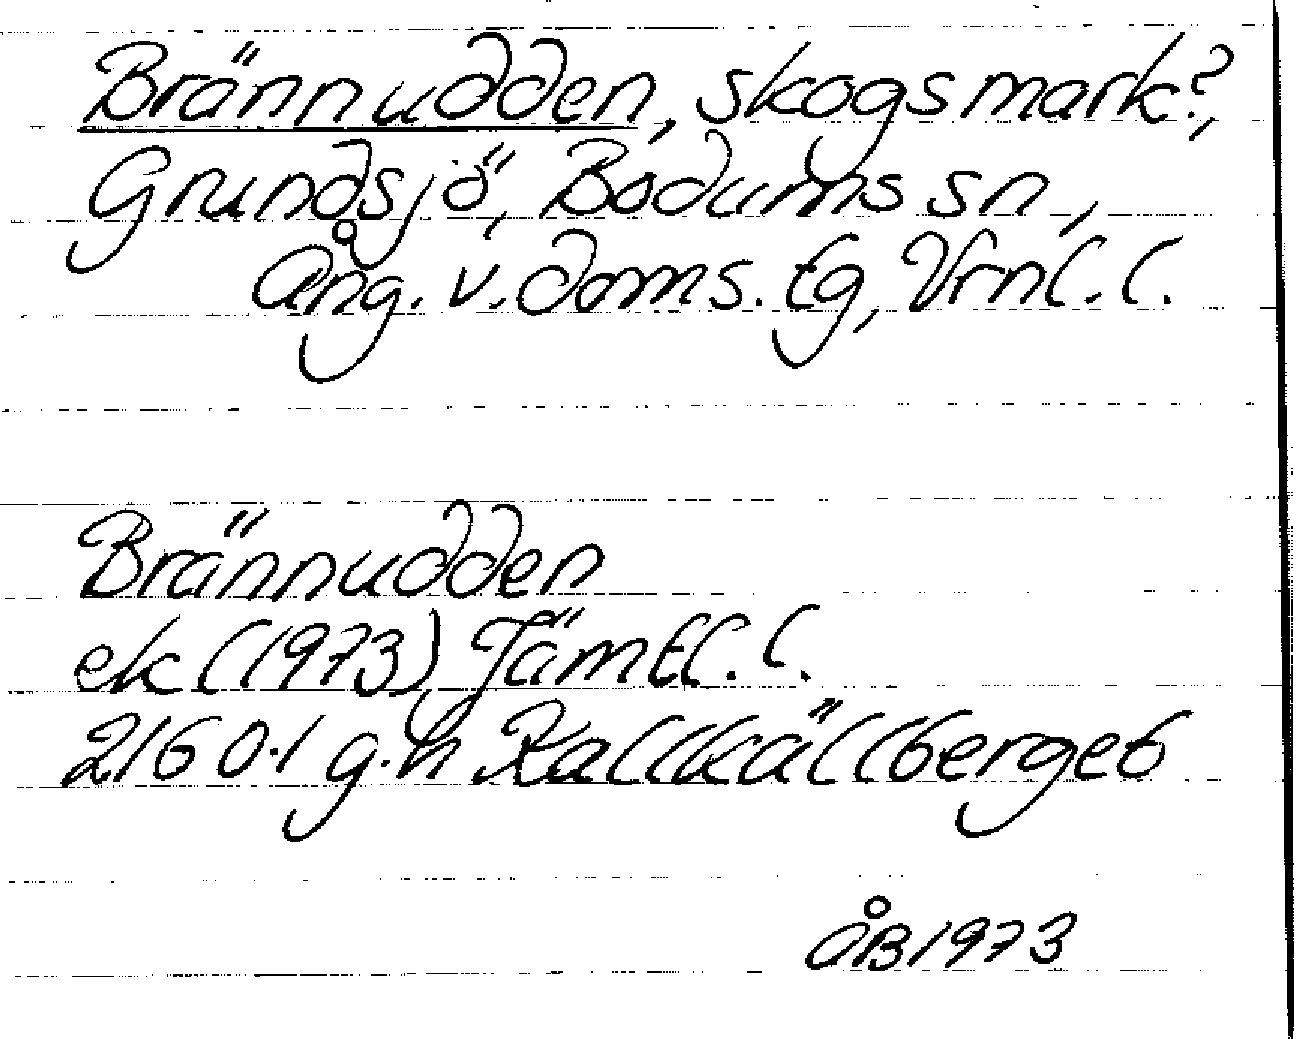 Brännudden, skogsmark?,
Grundsjö, Bodums sn,
Ång. v. doms. tg, Vrnl. l.
Brännudden
ek (1973) Jämtl. l.
2160·1 g.h Kallkällberget
ÅB 1973